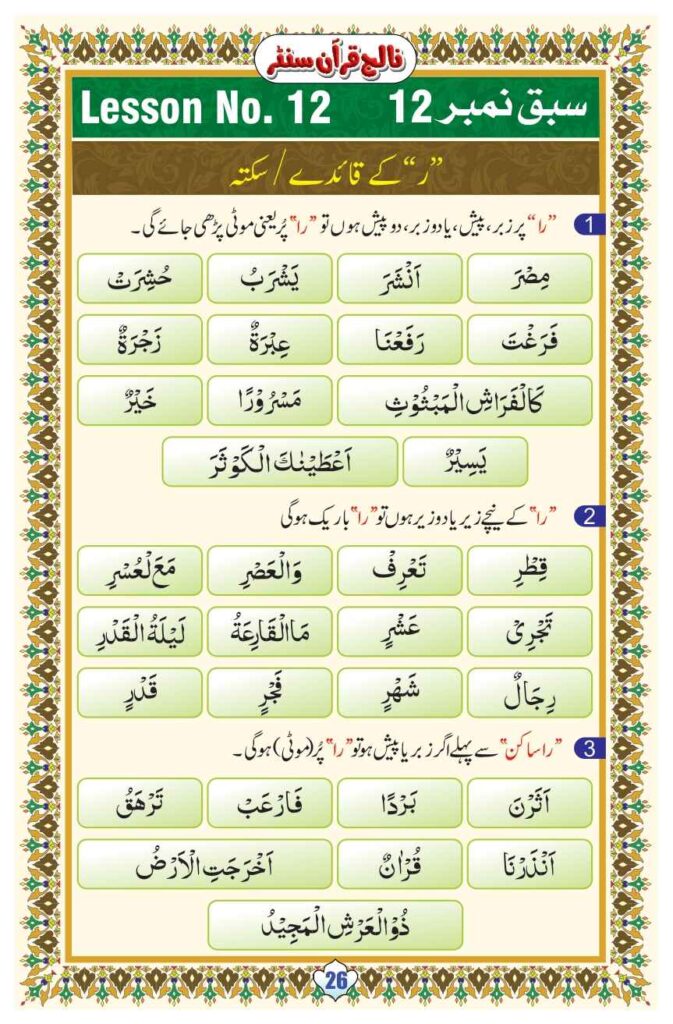 نالج قرآن سنٹر
Lesson No. 12 سبق نمبر 12
”ر“ کے قائدے / سکتہ
1 ”را“ پر زبر، پیش، یا دو زبر، دو پیش ہوں تو ”را“ پُر یعنی موٹی پڑھی جائے گی۔
مِصْرَ اَنْشَرَ يَشْرَبُ حُشِرَتْ
فَرَغْتَ رَفَعْنَا عِبْرَةٌ زَجْرَةٌ
كَالْفَرَاشِ الْمَبْثُوْثِ مَسْرُوْرًا خَيْرٌ
يَسِيْرٌ اَعْطَيْنٰكَ الْكَوْثَرَ
2 ”را“ کے نیچے زیر یا دو زیر ہوں تو ”را“ باریک ہوگی
قِطْرِ تَعْرِفْ وَالْعَصْرِ مَعَ لْعُسْرِ
تَجْرِىْ عَشْرٍ مَاالْقَارِعَةُ لَيْلَةُ الْقَدْرِ
رِجَالٌ شَهْرٍ فَجْرٍ قَدْرٍ
3 ”را ساکن“ سے پہلے اگر زبر یا پیش ہو تو ”را“ پُر (موٹی) ہوگی۔
اَثَرْنَ بَرْدًا فَارْعَبْ تَرْهَقُ
اَنْذَرْنَا قُرْاٰنٌ اَخْرَجَتِ الْاَرْضُ
ذُوالْعَرْشِ الْمَجِيْدُ
26